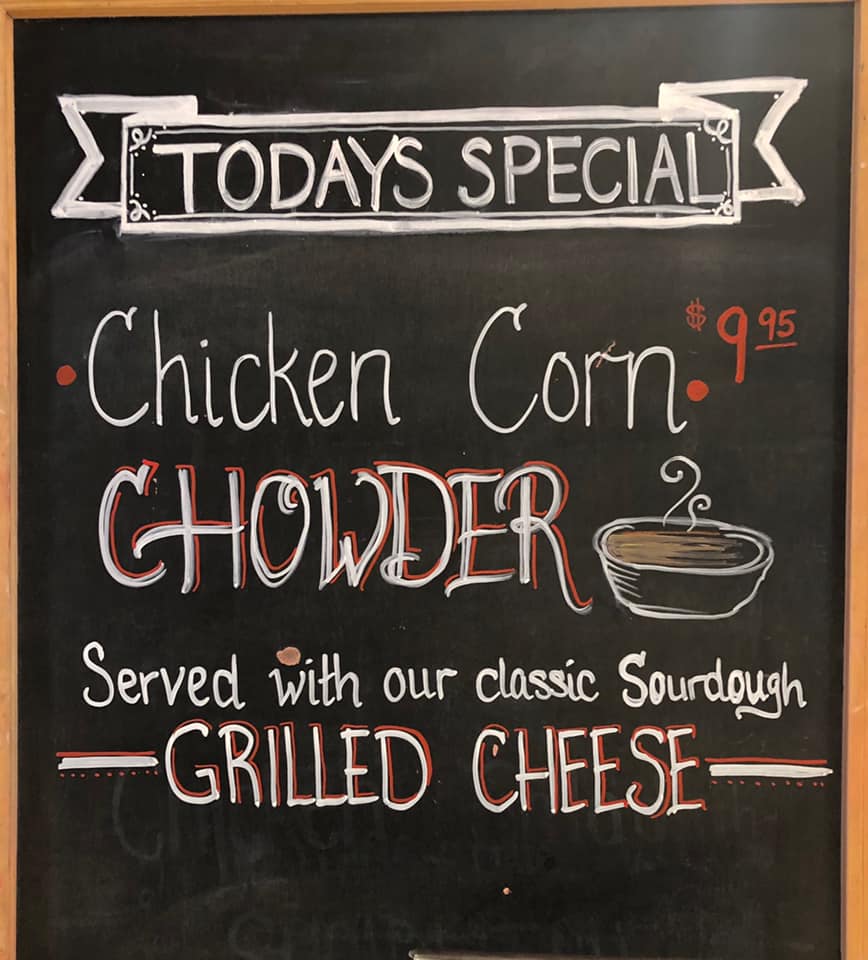 TODAYS SPECIAL
Chicken Corn $9.95
CHOWDER
Served with our classic Sourdough
GRILLED CHEESE